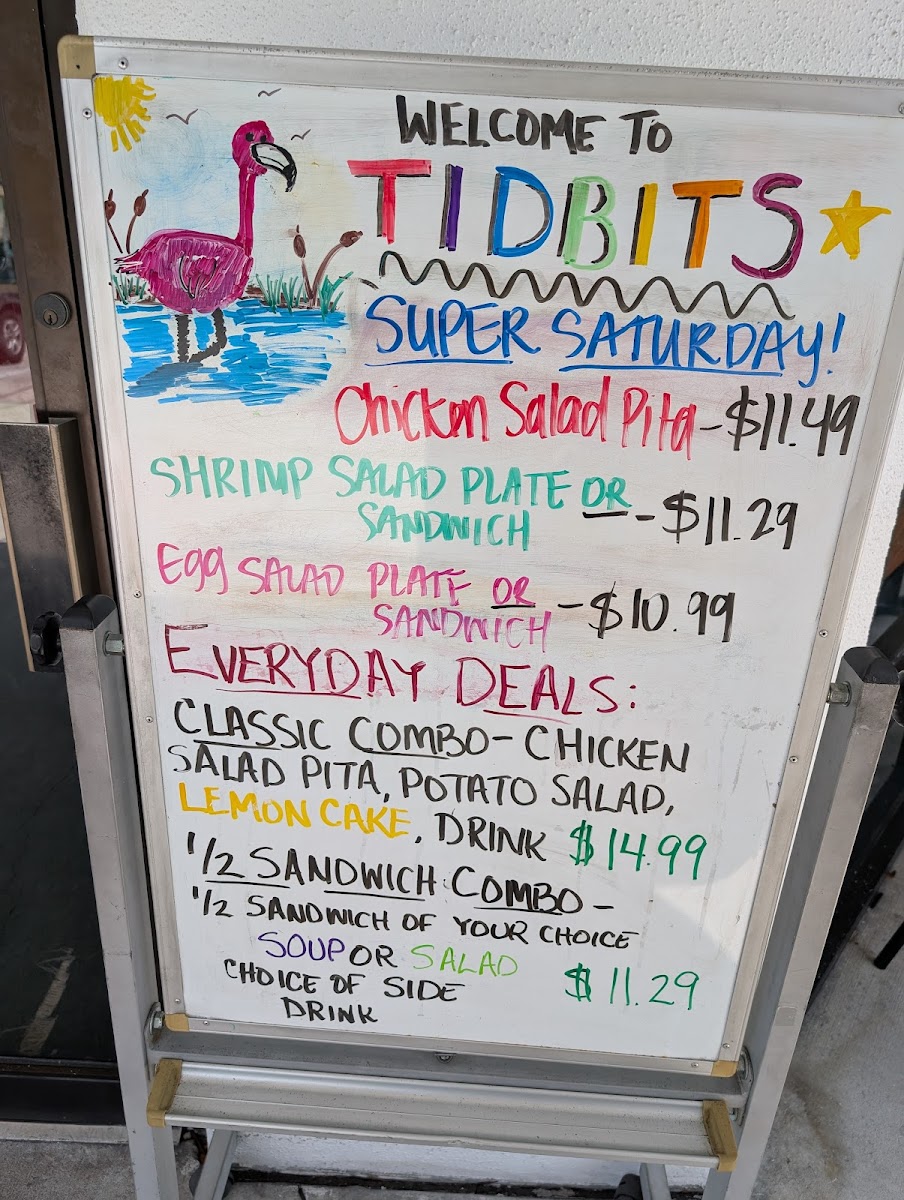 WELCOME TO
TIDBITS
SUPER SATURDAY!
Chicken Salad Pita - $11.49
SHRIMP SALAD PLATE OR
SANDWICH - $11.29
Egg SALAD PLATE OR
SANDWICH - $10.99
EVERYDAY DEALS:
CLASSIC COMBO - CHICKEN
SALAD PITA, POTATO SALAD,
LEMON CAKE, DRINK $14.99
1/2 SANDWICH COMBO -
1/2 SANDWICH OF YOUR CHOICE
SOUP OR SALAD
CHOICE OF SIDE $11.29
DRINK